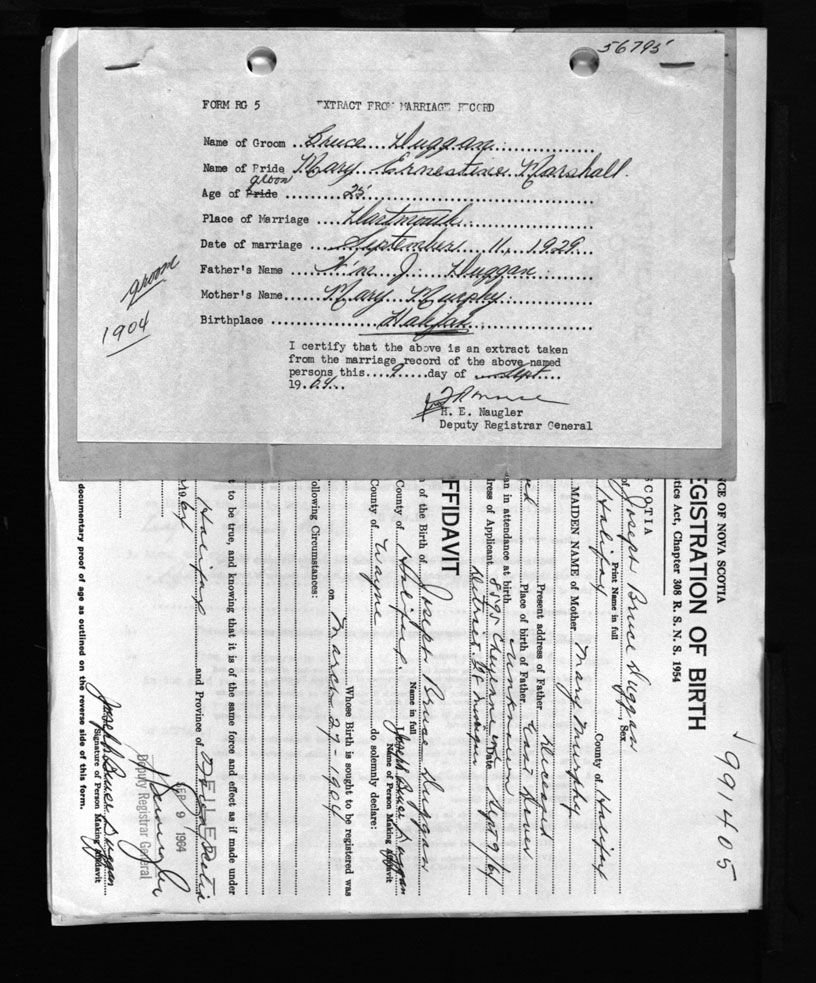 56795
FORM RG 5 EXTRACT FROM MARRIAGE RECORD
Name of Groom ..Bruce Duggan
Name of Bride Mary Ernestine Marshall.
groom
Age of Bride ........25
Place of Marriage ....Dartmouth
Date of marriage ..September 11, 1929
Father's Name ....Wm J. Duggan
Mother's Name......Mary Murphy
Birthplace ........Halifax
groom
1904
I certify that the above is an extract taken
from the marriage record of the above named
persons this....9....day of ..Sept....
19.64...
H. E. Naugler
Deputy Registrar General
991405
NCE OF NOVA SCOTIA
EGISTRATION OF BIRTH
tics Act, Chapter 308 R. S. N. S. 1954
SCOTIA
of Joseph Bruce Duggan Sex
Print Name in full
Halifax County of Halifax
MAIDEN NAME of Mother Mary Murphy
Present address of Father Deceased
Place of birth of Father East Dover
an in attendance at birth unknown
ress of Applicant 8595 Cheyenne Date Sept 9/64
Detroit
FFIDAVIT
n of the Birth of Joseph Bruce Duggan
Name in full
County of Halifax. Joseph Bruce Duggan
Name of Person Making Affidavit
County of Wayne do solemnly declare:
Whose Birth is sought to be registered was
on March 27 - 1904
ollowing Circumstances:
t to be true, and knowing that it is of the same force and effect as if made under
Halifax and Province of Nova Scotia
19 64
SEP 9 1964
Deputy Registrar General
Joseph Bruce Duggan
Signature of Person Making Affidavit
documentary proof of age as outlined on the reverse side of this form.